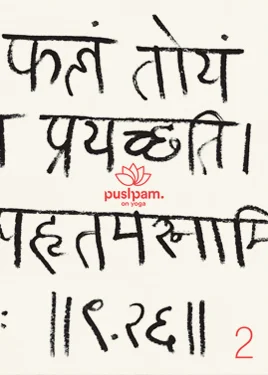 फलं तोयं
प्रयच्छति।
pushpam.
on yoga
पहृतमश्नामि
: ॥९.२६॥
2